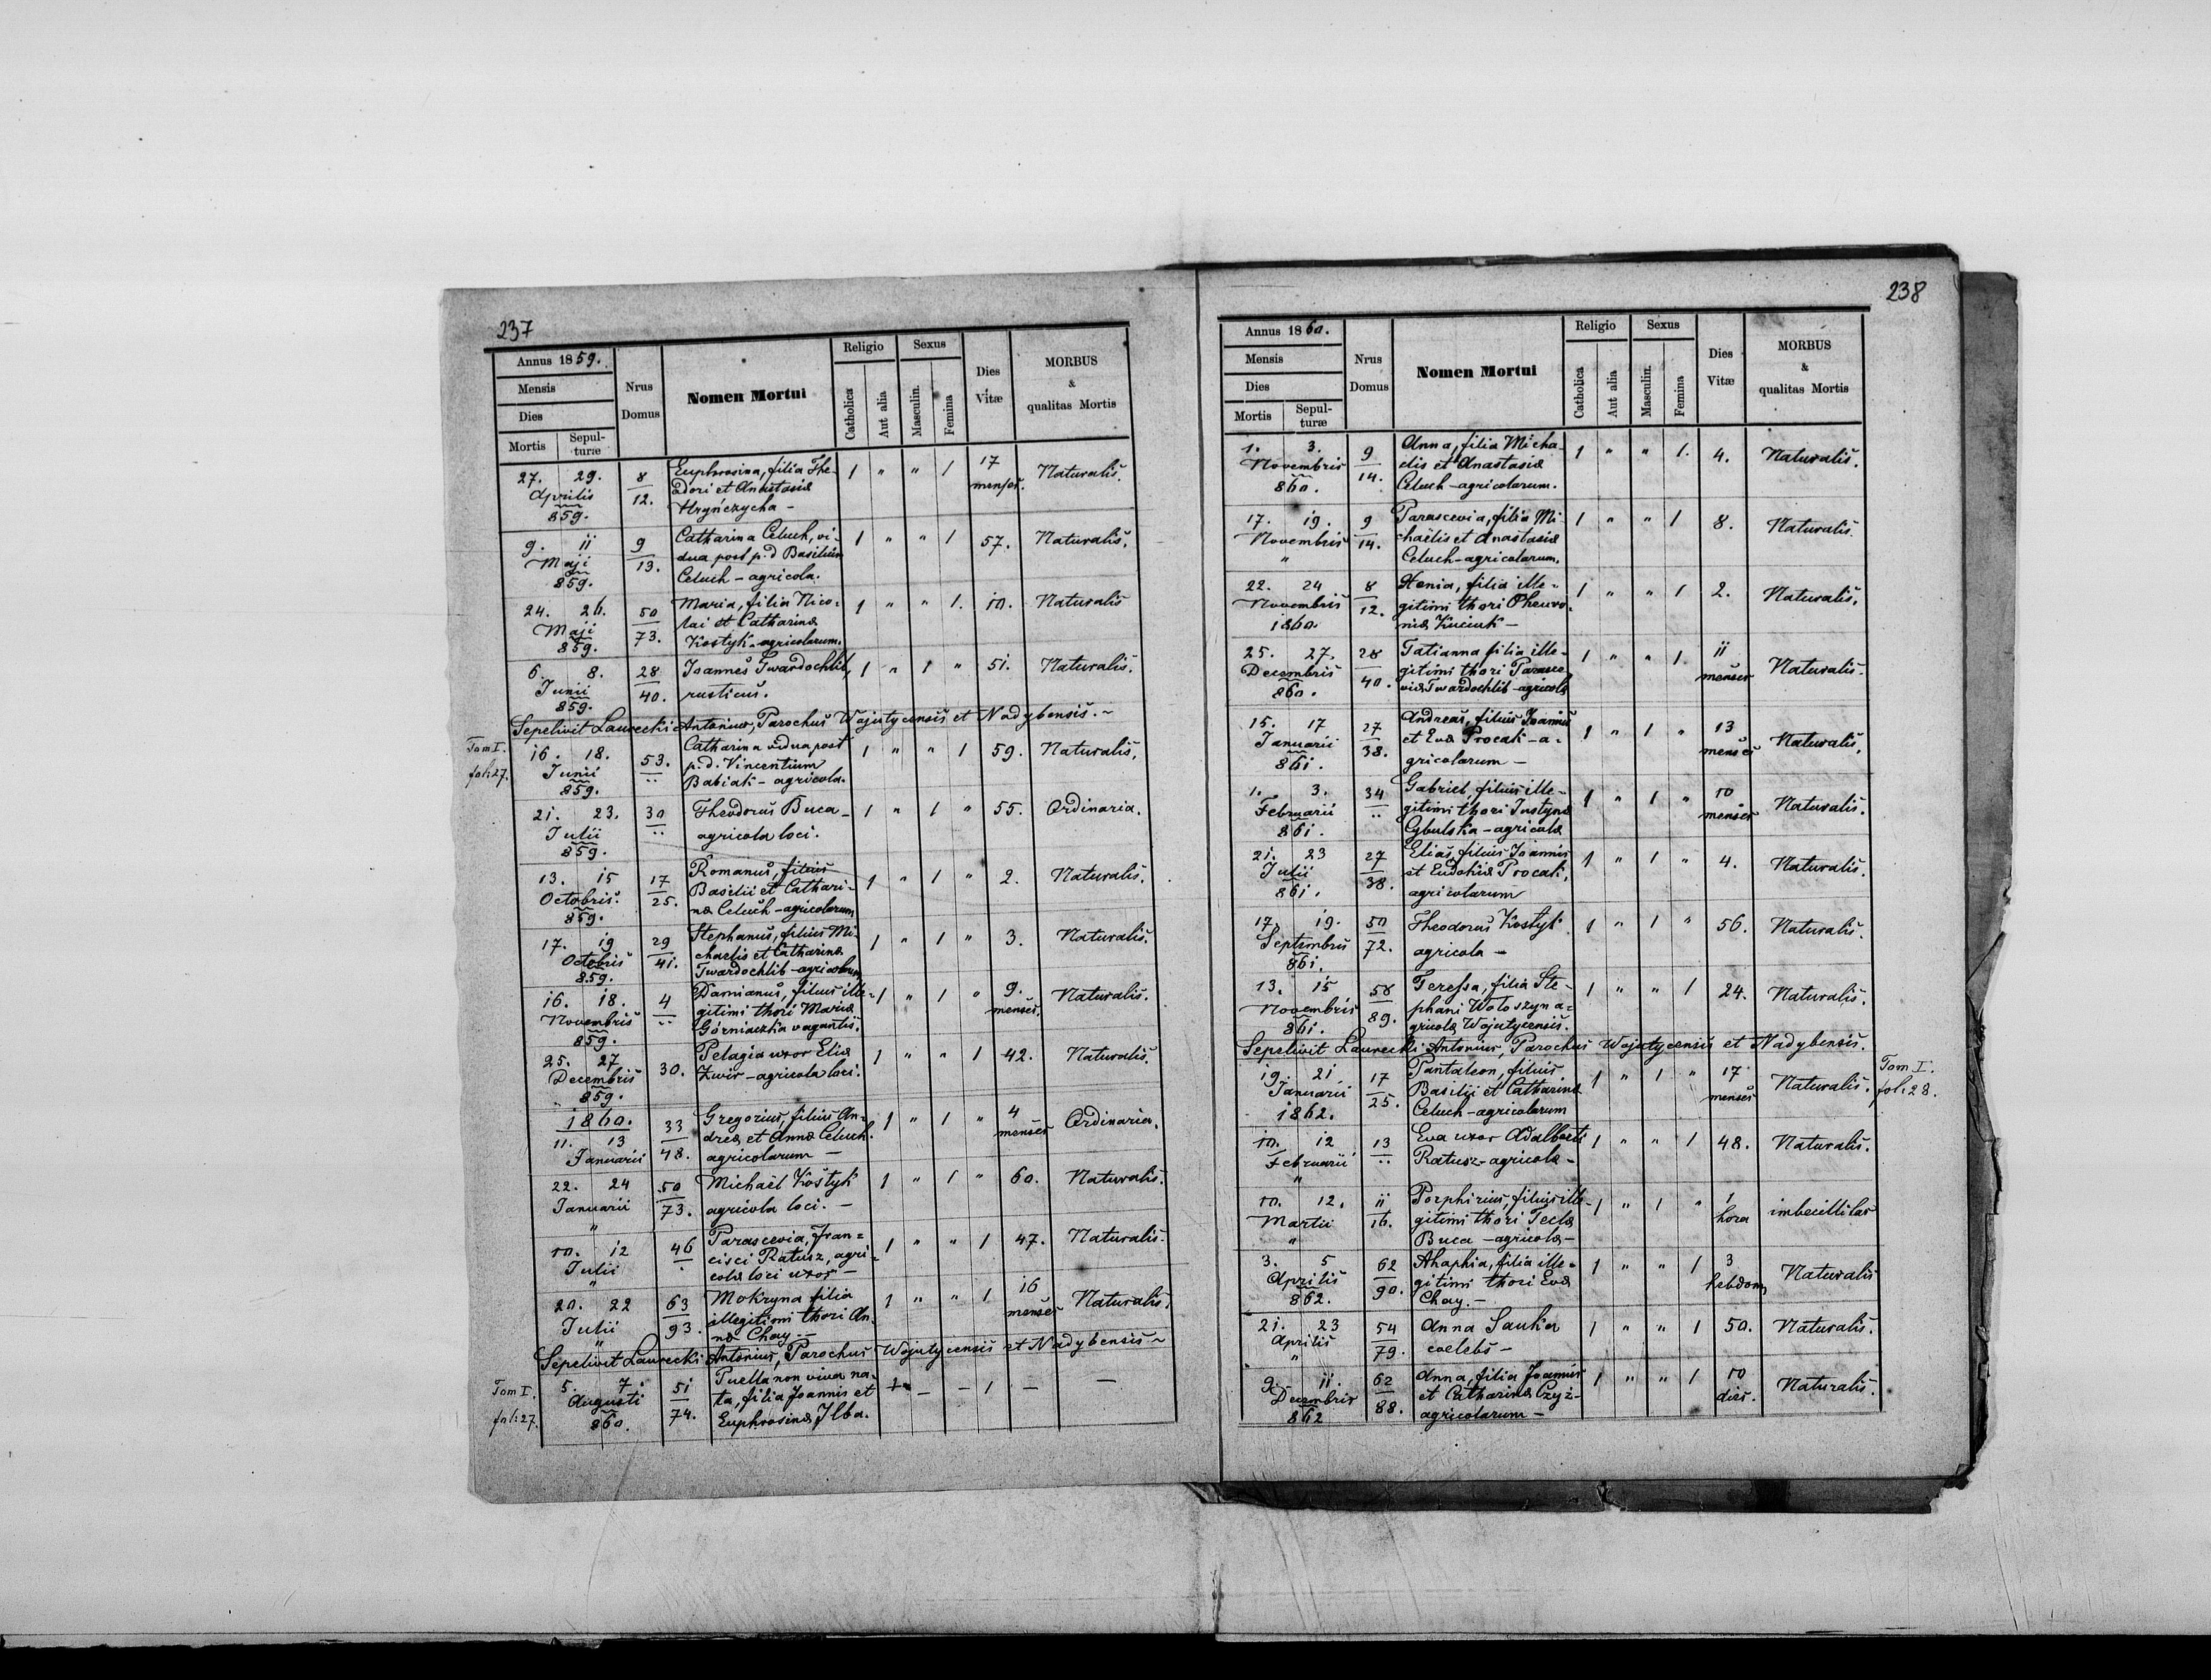 237
Annus 1859.
Mensis
Dies
Mortis Sepulturæ
Nrus Domus
Nomen Mortui
Religio
Catholica Aut alia
Sexus
Masculin. Femina
Dies Vitæ
MORBUS & qualitas Mortis
27. 29. 8 Euphrosina, filia The- 1 " " 1 17 Naturalis.
Aprilis 12. odori et Anastasiæ menses.
859. Hryńczycha -
9. ii 9 Catharina Celuch, vi- 1 " " 1 57. Naturalis.
Maji 13. dua post p.d Basilium
859. Celuch - agricola.
24. 26. 50 Maria, filia Nico- 1 " " 1. 10. Naturalis
Maji 73. lai et Catharinæ
859. Kostyk - agricolarum.
6. 8. 28 Joannes Twardochlib, 1 " 1 " 51. Naturalis.
Junii 40. rusticus.
859.
Sepelivit Laurecki Antonius, Parochus Wojutycensis et Nadybensis. ~
Tom I. fol: 27.
16. 18. 53. Catharina vidua post 1 " " 1 59. Naturalis.
Junii p.d. Vincentium
859. Babiak - agricola.
21. 23. 30 Theodorus Buca - 1 " 1 " 55. Ordinaria.
Julii agricola loci.
859.
13. 15 17 Romanus, filius 1 " 1 " 2. Naturalis.
Octobris. 25. Basilii et Cathari-
859. næ Celuch - agricolarum
17. 19 29 Stephanus, filius Mi- 1 " 1 " 3. Naturalis.
Octobris 41. chaelis et Catharinæ
859. Twardochlib - agricolarum
16. 18. 4 Damianus, filius ille- 1 " 1 " 9. Naturalis.
Novembris gitimi thori Mariæ menses.
859. Górniaczka vagantis.
25. 27 30. Pelagia uxor Eliæ 1 " " 1 42. Naturalis.
Decembris Zwir - agricola loci.
859.
1860. 33 Gregorius, filius An- 1 " 1 " 4 Ordinaria.
11. 13 48. dreæ et Annæ Celuch. menses
Januarii agricolarum -
22. 24 50 Michaël Kostyk 1 " 1 " 60. Naturalis.
Januarii 73. agricola loci. -
"
10. 12 46 Parascevia, Fran- 1 " " 1 47. Naturalis.
Julii cisci Ratusz, agri-
" colæ loci uxor -
20. 22 63 Mokryna filia 1 " " 1 16 Naturalis.
Julii 93. illegitimi thori An- menses
" næ Chay. -
Sepelivit Laurecki Antonius, Parochus Wojutycensis et Nadybensis ~
Tom I. fol: 27.
5. 7. 51 Puella non viva na- - - 1 - -
Augusti 74. ta, filia Joannis et
860. Euphrosinæ Ilba.
238
Annus 1860.
Mensis
Dies
Mortis Sepulturæ
Nrus Domus
Nomen Mortui
Religio
Catholica Aut alia
Sexus
Masculin. Femina
Dies Vitæ
MORBUS & qualitas Mortis
1. 3. 9 Anna, filia Micha- 1 " " 1. 4. Naturalis.
Novembris 14. elis et Anastasiæ
860. Celuch - agricolarum.
17. 19. 9 Parascevia, filia Mi- 1 " " 1 8. Naturalis.
Novembris 14. chaëlis et Anastasiæ
" Celuch - agricolarum.
22. 24 8 Xenia, filia ille- 1 " " 1 2. Naturalis.
Novembris 12. gitimi thori Phewro-
1860. niæ Kuciuk -
25. 27. 28 Tatianna filia ille- 1 " " 1. ii Naturalis.
Decembris 40. gitimi thori Parasce- menses
860. viæ Twardochlib - agricolæ
15. 17 27 Andreas, filius Joannis 1 " 1 " 13 Naturalis.
Januarii 38. et Evæ Procak - a- menses
861. gricolarum -
1. 3. 34 Gabriel, filius ille- 1 " 1 " 10 Naturalis.
Februarii gitimi thori Justynæ menses
861. Cybulska - agricolæ
21. 23 27 Elias, filius Joannis 1 " 1 " 4. Naturalis.
Julii 38. et Eudokiæ Procak,
861. agricolarum
17. 19. 50 Theodorus Kostyk 1 " 1 " 56. Naturalis.
Septembris 72. agricola -
861.
13. 15 58 Teressa, filia Ste- 1 " " 1 24. Naturalis.
Novembris 89. phani Wołoszyn a-
861. gricolæ Wojutycensis.
Sepelivit Laurecki Antonius, Parochus Wojutycensis et Nadybensis.
Tom I. fol: 28.
19. 21 17 Pantaleon, filius 1 " 1 " 17 Naturalis.
Januarii 25. Basilii et Catharinæ menses
1862. Celuch - agricolarum
10. 12 13 Eva uxor Adalberti 1 " " 1 48. Naturalis.
Februarii Ratusz - agricolæ -
"
10. 12. ii Porphirius, filius ille- 1 " 1 " 1 imbecillitas
Martii 16. gitimi thori Teclæ hora
" Buca - agricolæ -
3. 5 62 Ahaphia, filia ille- 1 " " 1 3 Naturalis
Aprilis 90. gitimi thori Evæ hebdom.
862. Chay. -
21. 23 54 Anna Sauka 1 " " 1 50. Naturalis.
Aprilis 79. coelebs -
"
9. ii. 62 Anna, filia Joannis 1 " " 1 10 Naturalis.
Decembris 88. et Catharinæ Czyż - dies.
862 agricolarum -